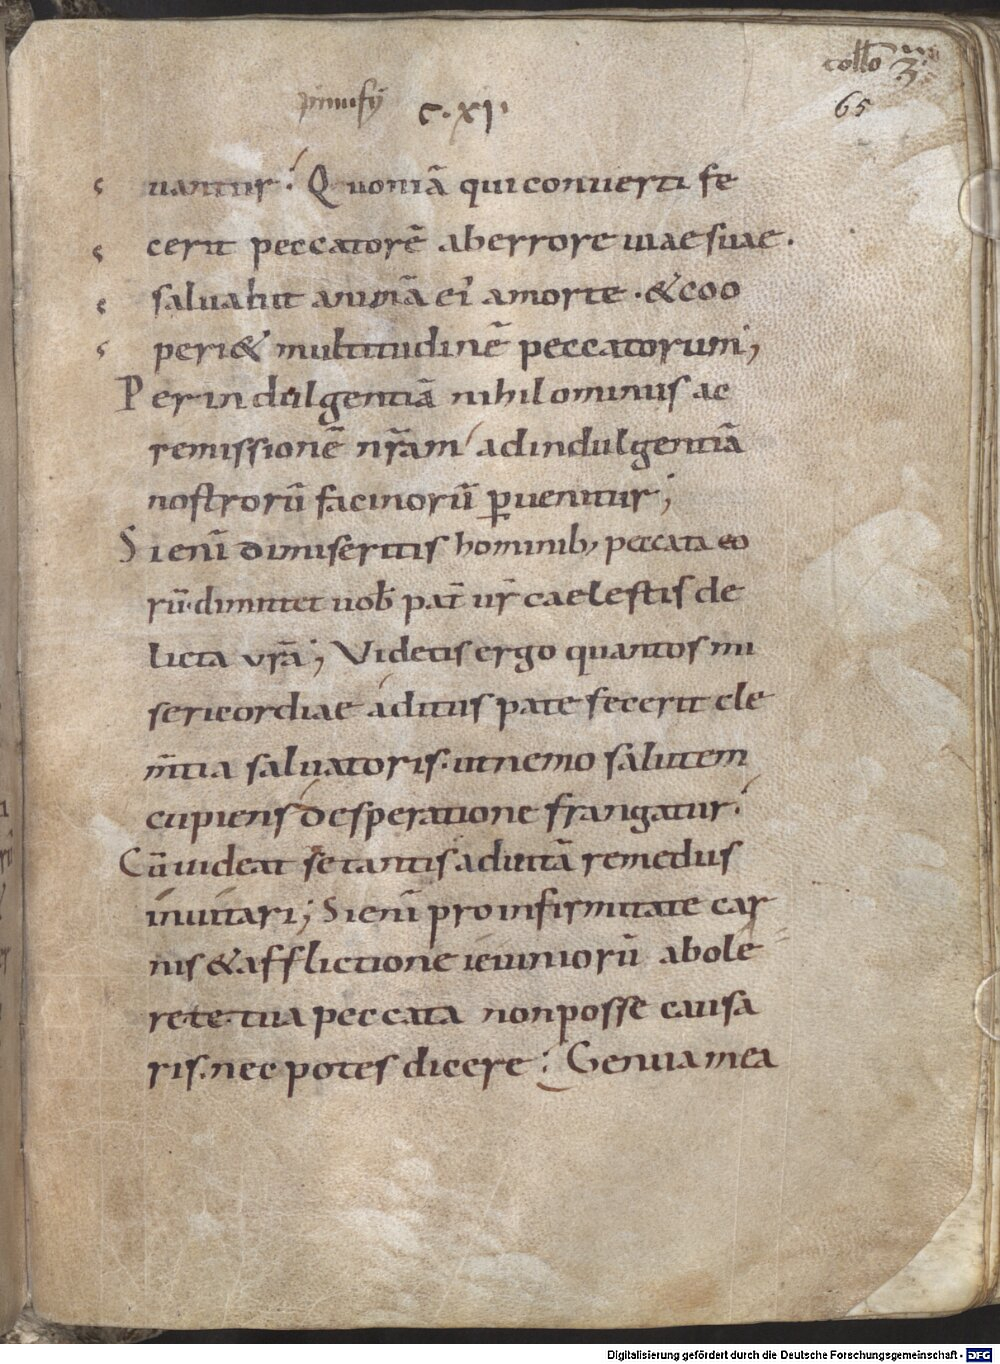 collo 3
65
pinufij c. xi
uantur; Quoniā qui conuerti fe
cerit peccatorē ab errore uiae suae.
saluabit animā ei' a morte. & coo
peri& multitudinē peccatorum;
Per indulgentiā nihilominus ac
remissionē nr̄am ad indulgentiā
nostrorū facinorū ꝑuenitur;
Si enī dimiseritis hominib; peccata eo
rū. dimittet uob̄ pat̄ ur̄ caelestis de
licta vr̄a; Videtis ergo quantos mi
sericordiae aditus patefecerit cle
m̄tia saluatoris. ut nemo salutem
cupiens desperatione frangatur.
Cū uideat se tantis ad uitā remediis
inuitari; Si enī pro infirmitate car
nis & afflictione ieiuniorū abole
re te tua peccata non posse causa
ris. nec potes dicere; Genua mea
Digitalisierung gefördert durch die Deutsche Forschungsgemeinschaft - DFG